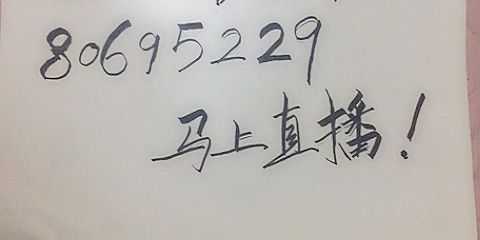 80695229
马上直播！